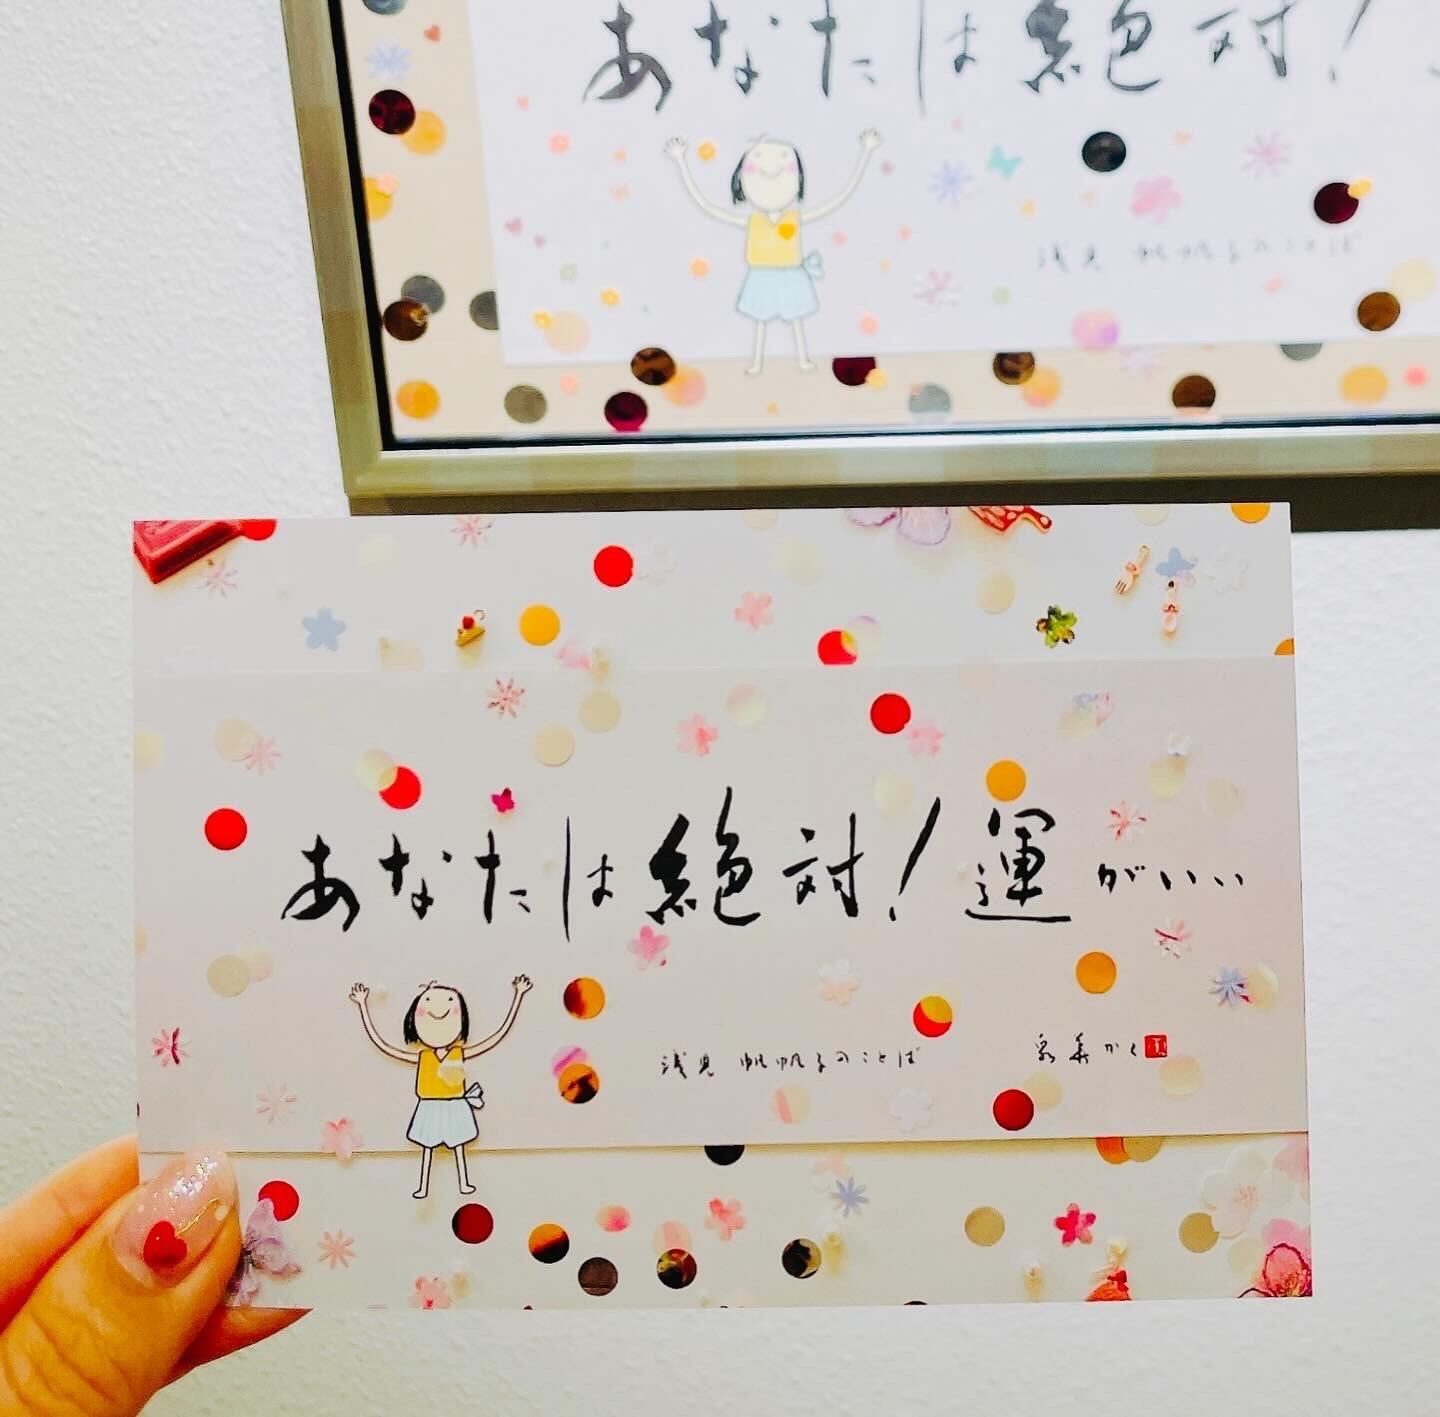 あなたは絶対!
浅見 帆帆子のことば
あなたは絶対!運がいい
浅見 帆帆子のことば
泉美かく